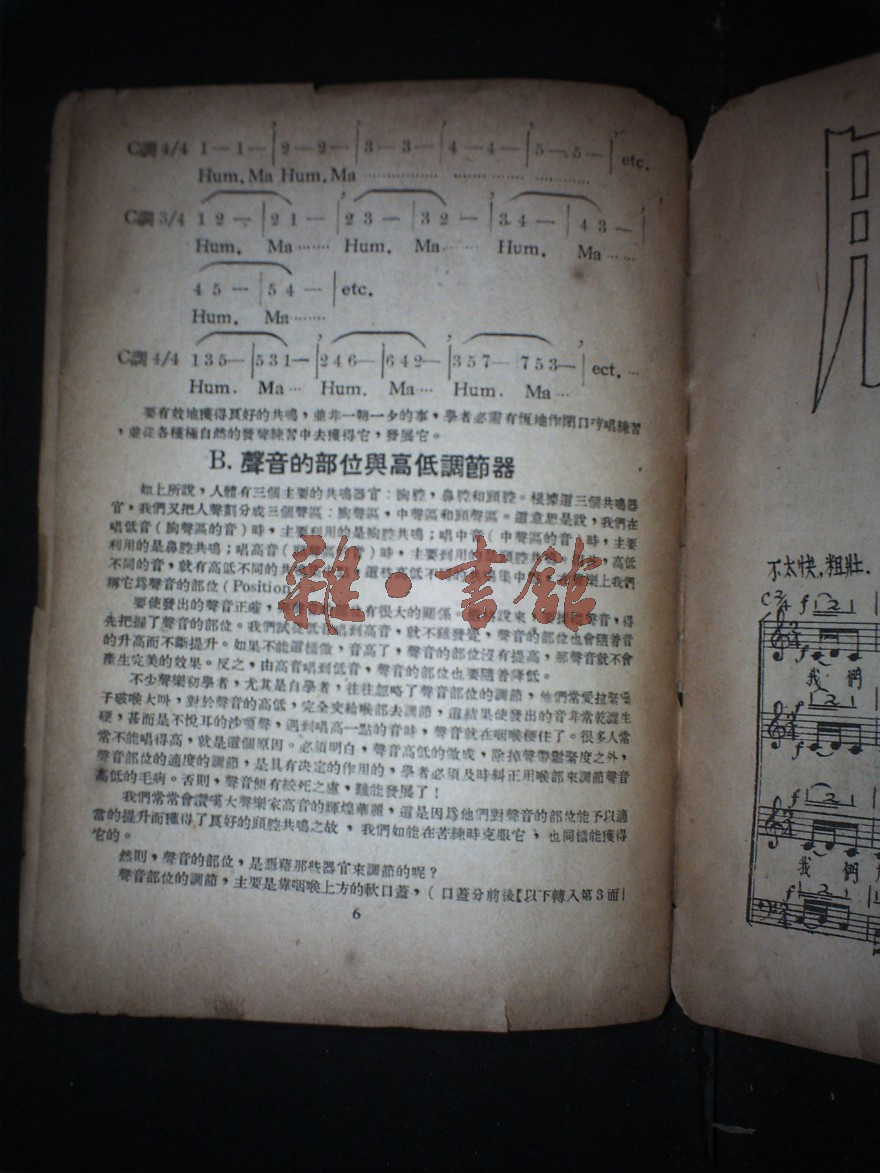 C調 4/4 1 — 1 — | 2 — 2 — | 3 — 3 — | 4 — 4 — | 5 — 5 — | etc.
Hum. Ma Hum. Ma ················ ········ ······· ···········
C調 3/4 1 2 — | 2 1 — | 2 3 — | 3 2 — | 3 4 — | 4 3 — |
Hum. Ma ········ Hum. Ma ······· Hum. Ma ······
4 5 — | 5 4 — | etc.
Hum. Ma ·······
C調 4/4 1 3 5 — | 5 3 1 — | 2 4 6 — | 6 4 2 — | 3 5 7 — 7 5 3 — | ect. ···
Hum. Ma ··· Hum. Ma ··· Hum. Ma ···
要有效地獲得良好的共鳴，並非一朝一夕的事，學者必需有恆地作閉口哼唱練習
，並從各種極自然的發聲練習中去獲得它，發展它。
B. 聲音的部位與高低調節器
如上所說，人體有三個主要的共鳴器官：胸腔，鼻腔和頭腔。根據這三個共鳴器
官，我們又把人聲劃分成三個聲區：胸聲區，中聲區和頭聲區。這意思是說，我們在
唱低音（胸聲區的音）時，主要利用的是胸腔共鳴；唱中音（中聲區的音）時，主要
利用的是鼻腔共鳴；唱高音（音）時，主要利用的頭腔共鳴。高低
不同的音，就有高低不同的共鳴，這些高低不同的共鳴集中，在聲樂上我們
稱它爲聲音的部位(Position
要使發出的聲音正確，有很大的關係。說來，聲音，得
先把握了聲音的部位。我們試從低音唱到高音，就不難發覺，聲音的部位也會隨着音
的升高而不斷提升。如果不能這樣做，音高了，聲音的部位沒有提高，那聲音就不會
產生完美的效果。反之，由高音唱到低音，聲音的部位也要隨着降低。
不少聲樂初學者，尤其是自學者，往往忽略了聲音部位的調節，他們常愛拉緊嗓
子破喉大叫，對於聲音的高低，完全交給喉部去調節，這結果使發出的音非常乾澀生
硬，甚而是不悅耳的沙嗄聲，遇到唱高一點的音時，聲音就在咽喉梗住了。很多人常
常不能唱得高，就是這個原因。必須明白，聲音高低的做成，除掉聲帶鬆緊度之外，
聲音部位的適度的調節，是具有決定的作用的，學者必須及時糾正用喉部來調節聲音
高低的毛病。否則，聲音便有絞死之虞，難能發展了！
我們常常會讚嘆大聲樂家高音的輝煌華麗，這是因爲他們對聲音的部位能予以適
當的提升而獲得了良好的頭腔共鳴之故，我們如能在苦練時克服它，也同樣能獲得
它的。
然則，聲音的部位，是憑藉那些器官來調節的呢？
聲音部位的調節，主要是靠咽喉上方的軟口蓋，（口蓋分前後【以下轉入第3面
6
雜·書館
不太快，粗壯．
C 2/4
f
我 們
f
f
我 們
f